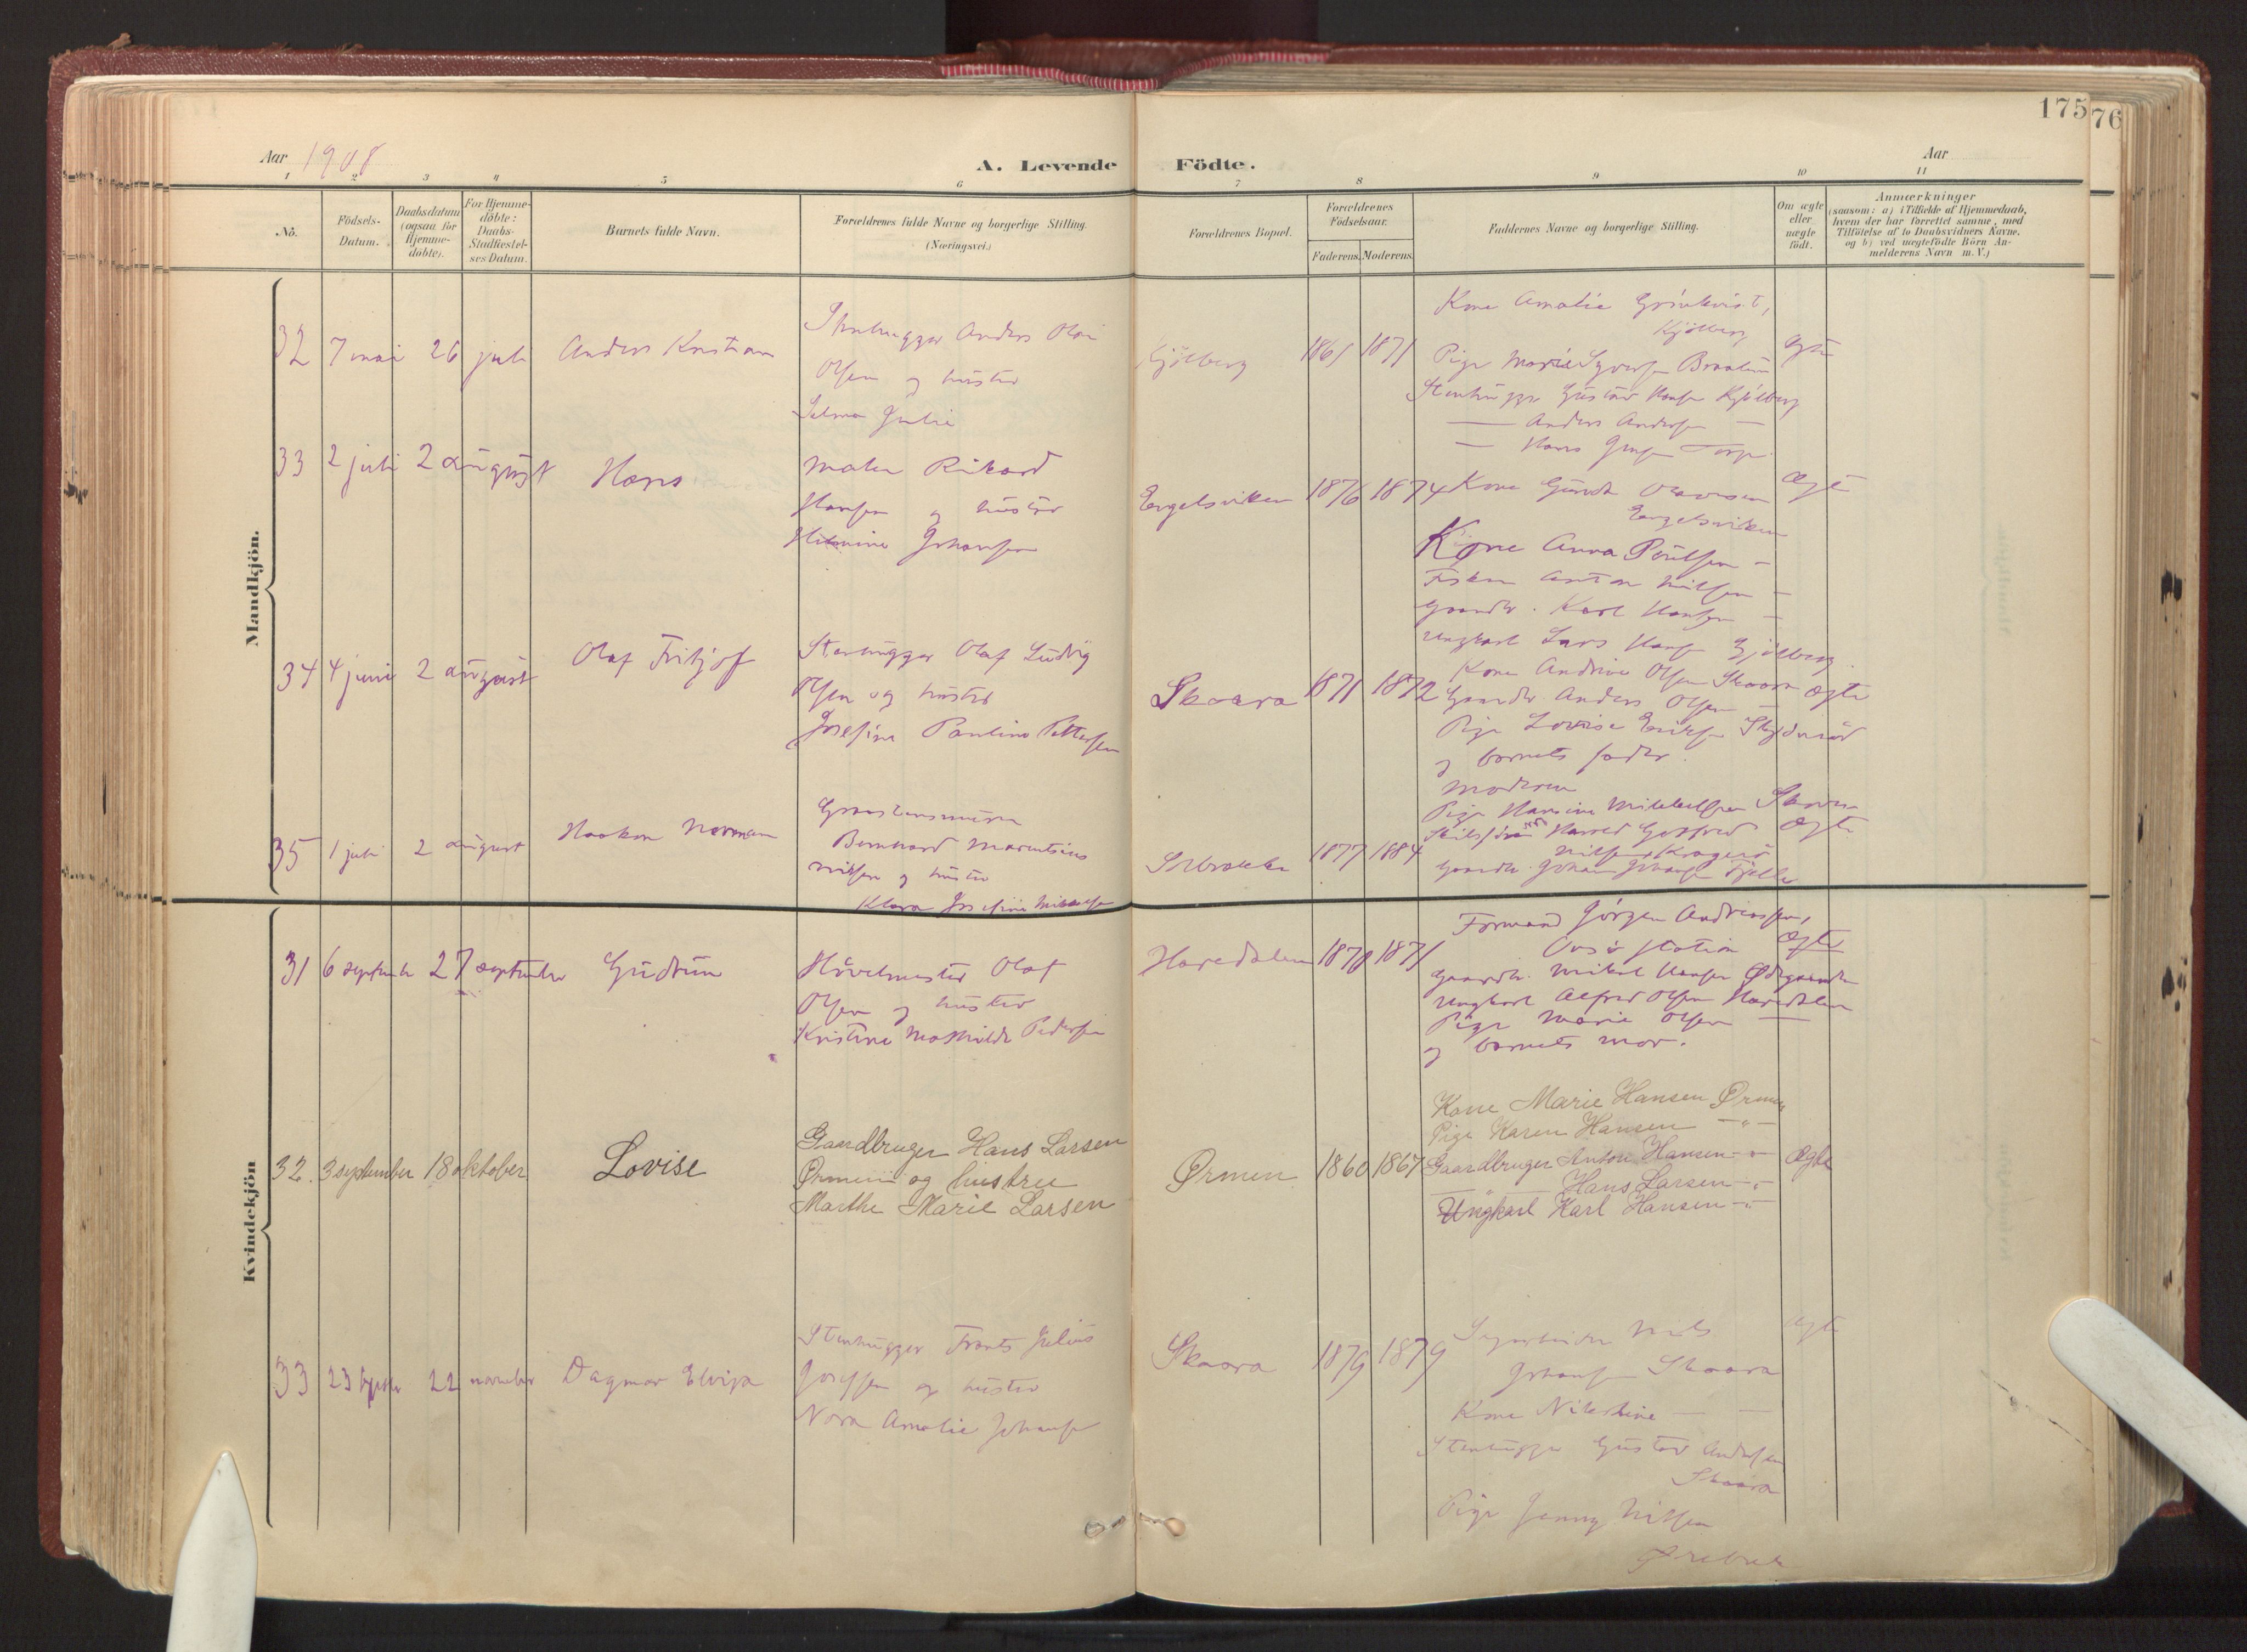 175
76
Aar 1908
A. Levende Födte.
Aar
1 2 3 4 5 6 7 8 9 10 11
Nô.
Födsels-
Datum.
Daabsdatum
(ogsaa for
Hjemme-
döbte).
For Hjemme-
döbte:
Daabs-
Stadfæstel-
ses Datum.
Barnets fulde Navn.
Forældrenes fulde Navne og borgerlige Stilling.
(Næringsvei.)
Forældrenes Bopæl.
Forældrenes
Födselsaar.
Faderens. Moderens.
Faddernes Navne og borgerlige Stilling.
Om ægte
eller
uægte
födt.
Anmærkninger
(saasom: a) i Tilfælde af Hjemmedaab,
hvem der har forrettet samme, med
Tilföielse af to Daabsvidners Navne.
og b) ved uægtefödte Börn An-
melderens Navn m. V.)
Mandkjön.
32 7 mai 26 juli Anders Kristian
Stenhugger Anders Olai
Olsen og hustru
Selma Julie
Kjölberg 1865 1871
Kone Amalie
Kjölberg
Pige Marie Syversen Braaten
Stenhugger Gustav Hansen Kjölberg
— Anders Andersen —
— Hans Jensen Torp
ægte
33 2 juli 2 august Hans
Maler Rikard
Hansen og hustru
Johansen
Engelsviken 1876 1874
Kone Gunda
Engelsviken
Kone Anna Poulsen —
Fisker Anton Nilsen —
Gaardbr. Karl Hansen —
Ungkarl Lars Hansen
ægte
34 4 juni 2 august Olaf Fritjof
Stenhugger Olaf Ludvig
Olsen og hustru
Josefine Pauline Pettersen
Skaara 1871 1872
Kone Andrine Olsen Skaara
Gaardbr. Anders Olsen —
Pige Lovise Eriksen
og barnets fader.
ægte
35 1 juli 2 august Haakon Norman
Bernhard
Nilsen og hustru
Klara Josefine
Solbrække 1877 1884
Moderen
Pige Hansine Mikkelsen Skaara
Harald Gotfred
Nilsen, Kragerö
Gaardbr. Johan Johansen Fjelle
ægte
Kvindekjön
31 6 september 27 september Gudrun
Hövelmester Olaf
Olsen og hustru
Kristine Mathilde Pedersen
Haredalen 1870 1871
Formand Jörgen Andreassen,
Onsö station
Gaardbr. Mikal Hansen Ødegaarden
Ungkarl Alfred Olsen Haredalen
Pige Marie Olsen —
og barnets mor.
ægte
32. 3 september 18 oktober Lovise
Gaardbruger Hans Larsen
Ørmen og hustru
Marthe Marie Larsen
Ørmen 1860 1867
Kone Marie Hansen Ørmen
Pige Karen Hansen —"—
Gaardbruger Anton Hansen —"—
—"— Hans Larsen —"—
Ungkarl Karl Hansen —"—
ægte
33 23 22 november Dagmar Elvira
Stenhugger Frants Julius
Josefsen og hustru
Nora Amalie Johansen
Skaara 1879 1879
Nils
Johansen Skaara
Kone — —
Stenhugger Gustav Andersen
Skaara
Pige Jenny Nilsen
ægte